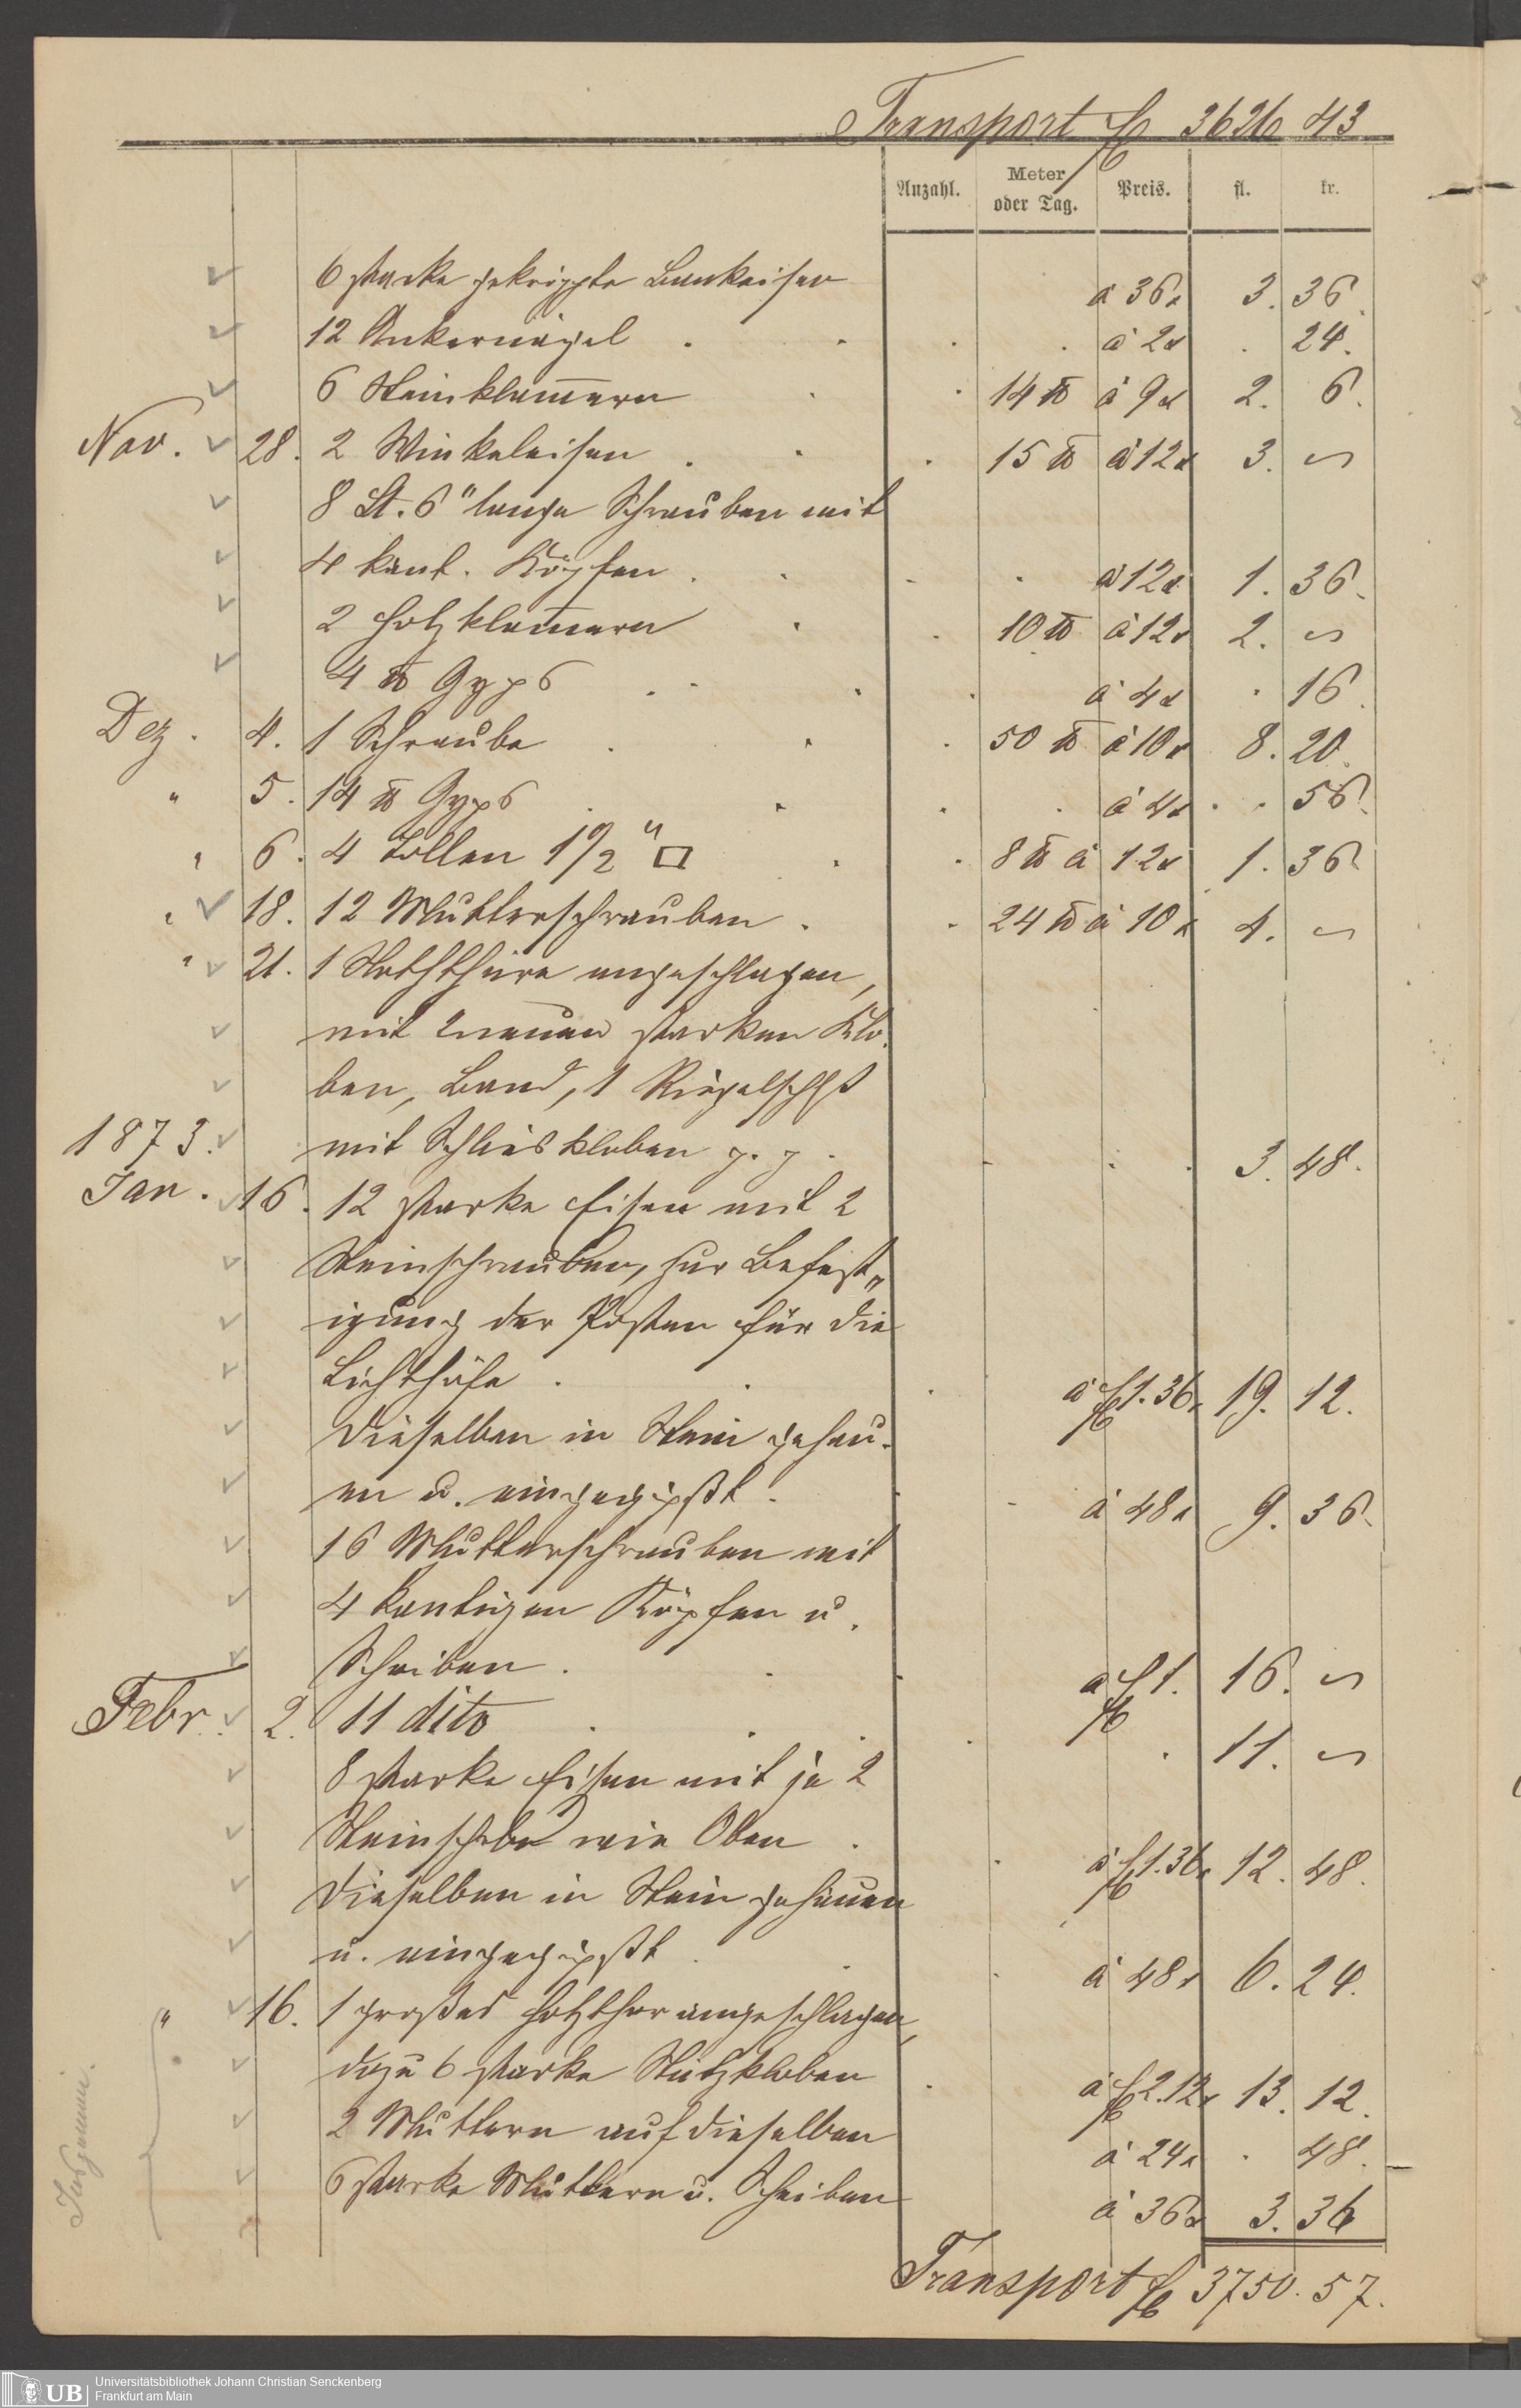 Transport fl 3626 43
Anzahl. Meter oder Tag. Preis. fl. kr.
6 starke gekrippte Bankeisen à 36x 3. 36.
12 Ankernägel . . . . à 2x . 24.
6 Steinklam̅ern . . 14 ℔ à 9x 2. 6.
Nov. 28. 2 Winkeleisen . . . 15 ℔ à 12x 3. ~
8 St. 6" lange Schrauben mit
4 kant. Köpfen . . . . à 12x 1. 36.
2 Holzklam̅ern . . 10 ℔ à 12x 2. ~
4 ℔ Gyps . . . . à 4x . 16.
Dez. 4. 1 Schraube . . . 50 ℔ à 10x 8. 20.
" 5. 14 ℔ Gyps . . . . à 4x . . 56.
" 6. 4 Tollen 1 1/2 " □ . . 8 ℔ à 12x 1. 36
" 18. 12 Mutterschrauben . . 24 ℔ à 10x 4. ~
" 21. 1 angeschlagen,
mit neuen starken Klo-
ben, Band, 1 Riegelschloß
mit Schlieskloben . . . 3. 48.
1873.
Jan. 16. 12 starke Eisen mit 2
Steinschrauben, zur Befest„
igung der Pfosten für die
Lichthöfe . . . à fl 1. 36x 19. 12.
Dieselben in Stein gehau-
en u. eingegipßt . . . à 48x 9. 36.
16 Mutterschrauben mit
4 kantigen Köpfen u.
Scheiben . . . à fl 1. 16. ~
Febr. 2. 11 dito . . . . . 11. ~
8 starke Eisen mit je 2
Steinschrbn wie Oben . . à fl 1. 36x 12. 48.
Dieselben in Stein gehauen
u. eingegipßt . . . à 48x 6. 24.
" 16. 1 großes Holzthor angeschlagen,
dazu 6 starke Stützkloben . à fl 2. 12x 13. 12.
2 Muttern auf dieselben à 24x . 48.
6 starke Muttern u. Scheiben à 36x 3. 36
Transport fl 3750. 57.
UB Universitätsbibliothek Johann Christian Senckenberg
Frankfurt am Main